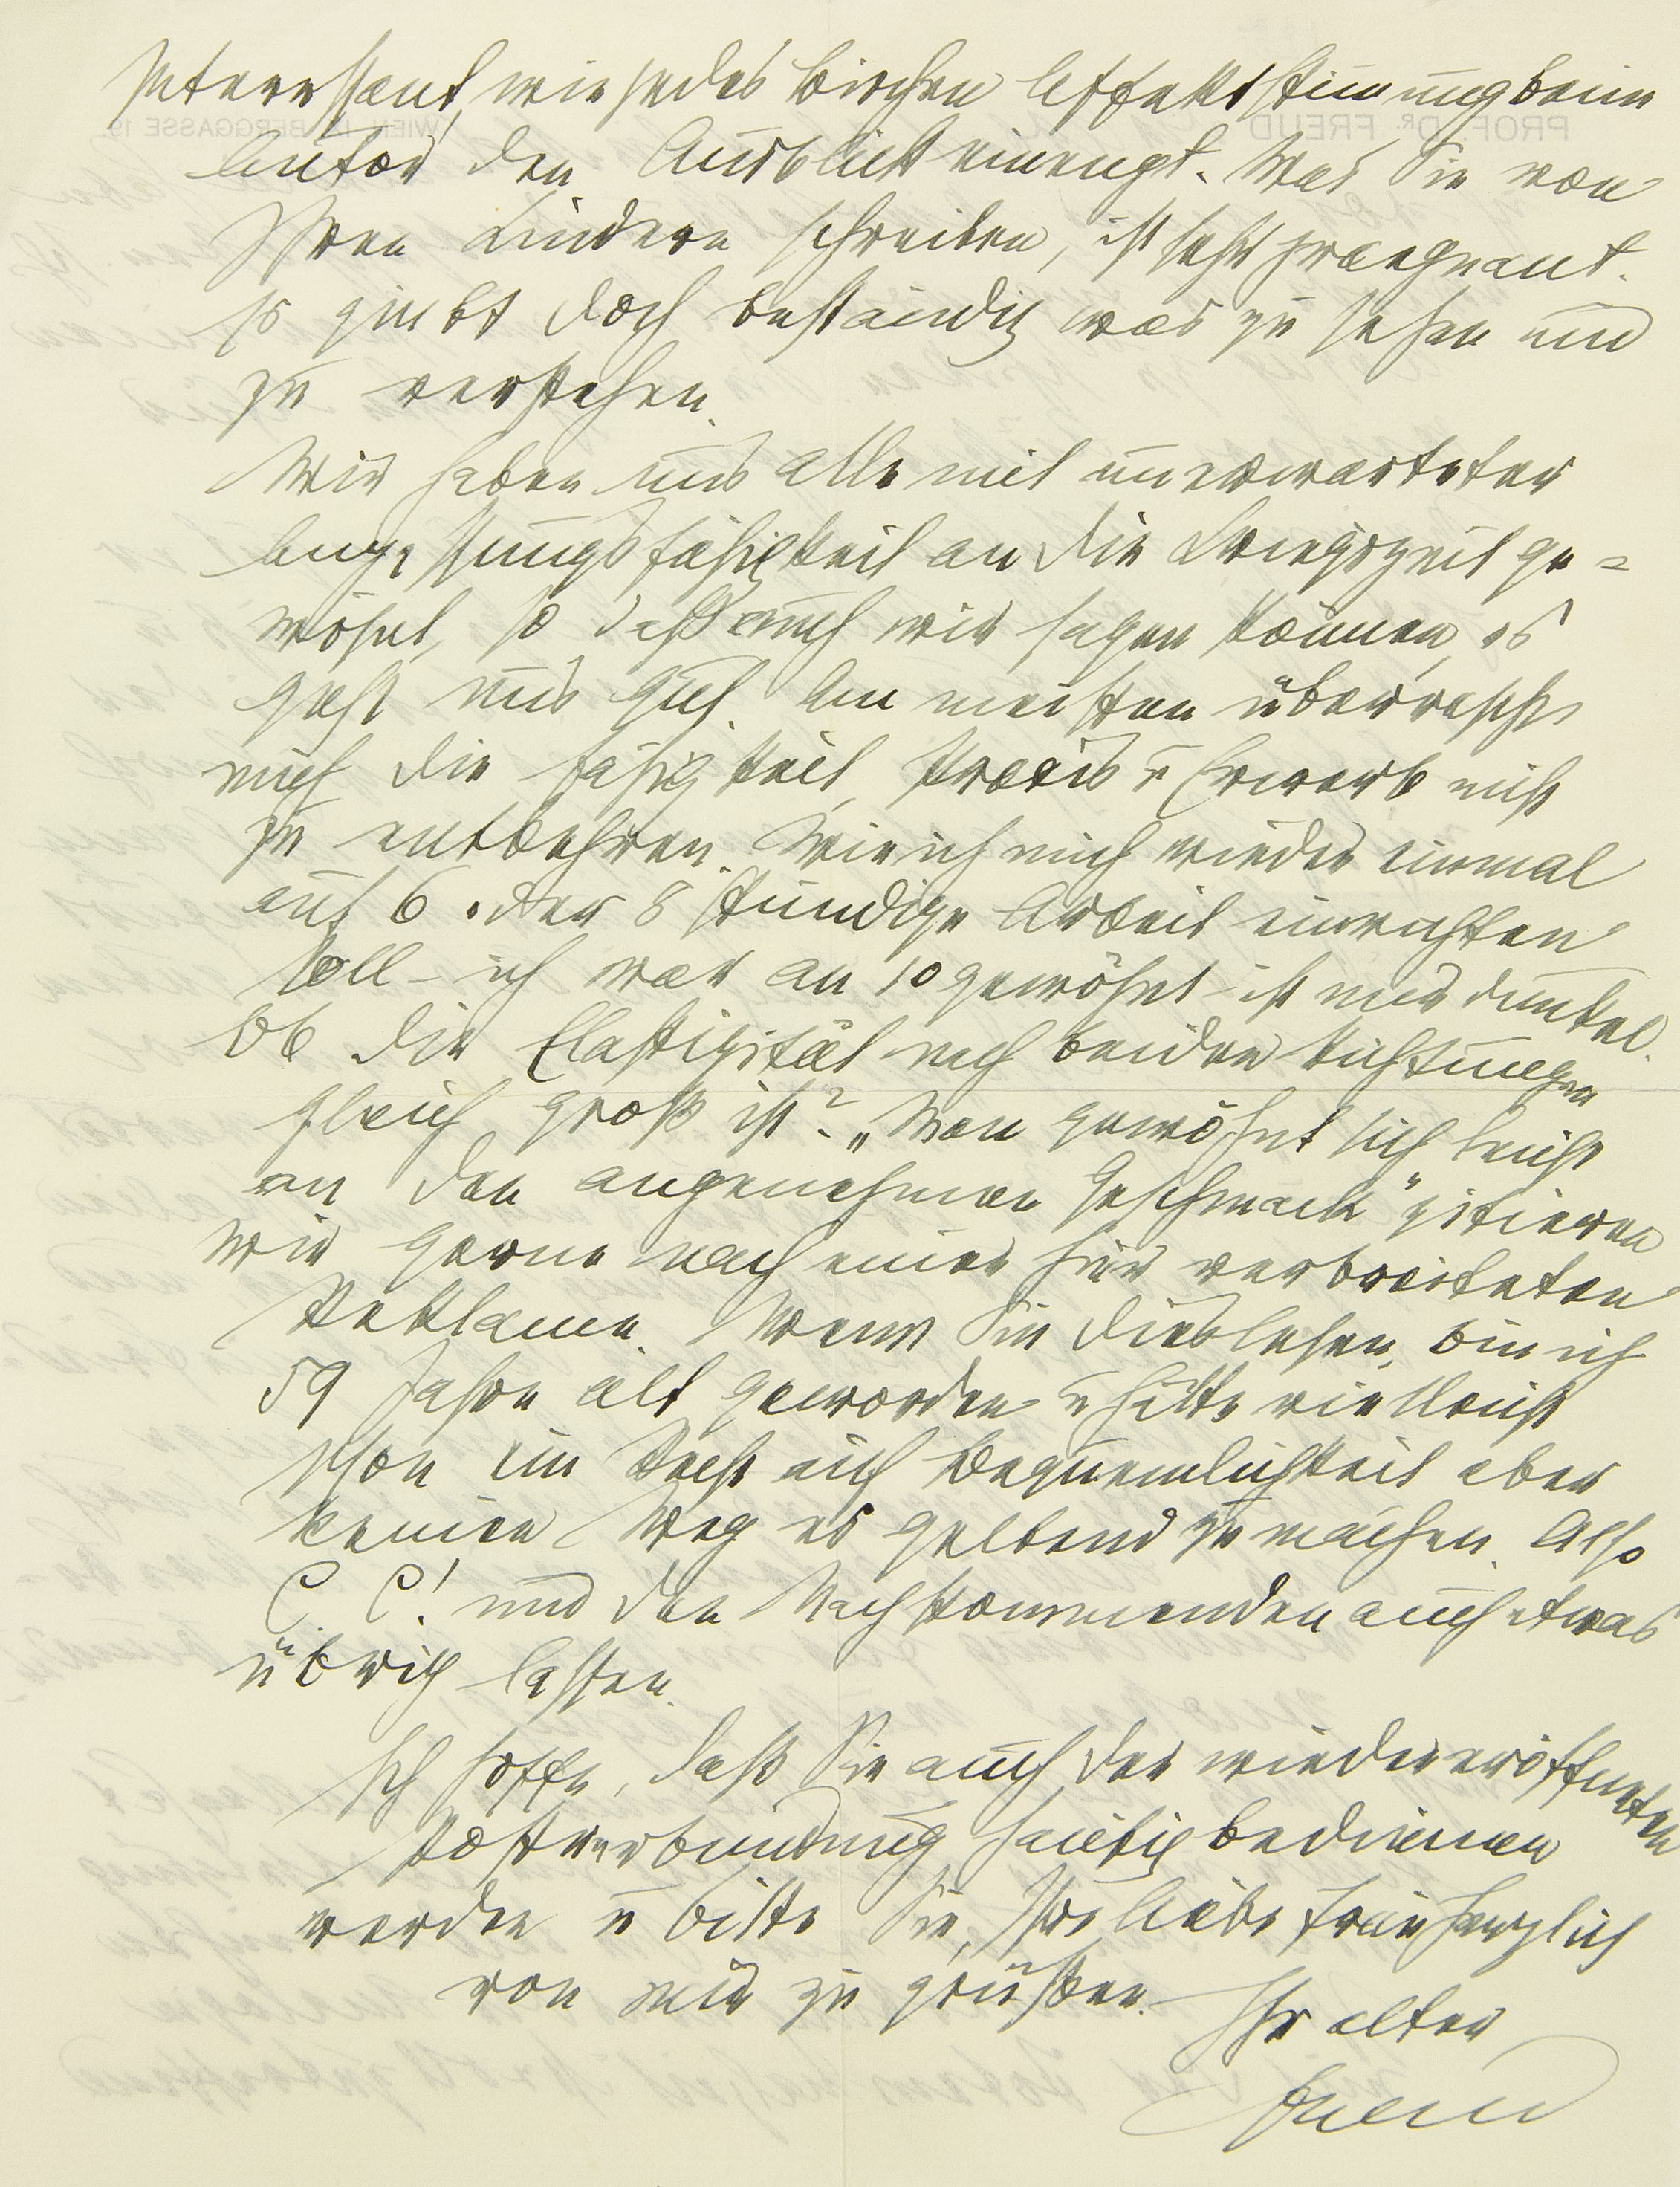 Interessant, wie jedes bischen Affektstimmung beim
Autor den Ausblick einengt. Was Sie von
Ihren Kindern schreiben, ist sehr praegnant.
Es giebt doch beständig was zu sehen und
zu verstehen.
Wir haben uns alle mit unerwarteter
Anpassungsfähigkeit an die Kriegszeit ge=
wöhnt, so daß auch wir sagen können, es
geht uns gut. Am meisten überrascht
mich die Fähigkeit, Praxis u Erwerb nicht
zu entbehren. Wie ich mich wieder einmal
auf 6 oder 8 stündige Arbeit einrichten
soll – ich war an 10 gewöhnt – ist mir dunkel.
Ob die Elastizität nach beiden Richtungen
gleich groß ist? „Man gewöhnt sich leicht
an den angenehmen Geschmack" zitieren
wir gerne nach einer hier verbreiteten
Reklame. Wenn Sie dies lesen, bin ich
59 Jahre alt geworden u hätte vielleicht
schon ein Recht auf Bequemlichkeit aber
keinen Weg es geltend zu machen. Also
C. C! und den Nachkommenden auch etwas
übrig lassen.
Ich hoffe, daß Sie auch der wiedereröffneten
Postverbindung häufig bedienen
werden u bitte Sie, Ihre liebe Frau herzlich
von mir zu grüßen.
Ihr alter
Freud
PROF. DR. FREUD
WIEN, IX. BERGGASSE 19.